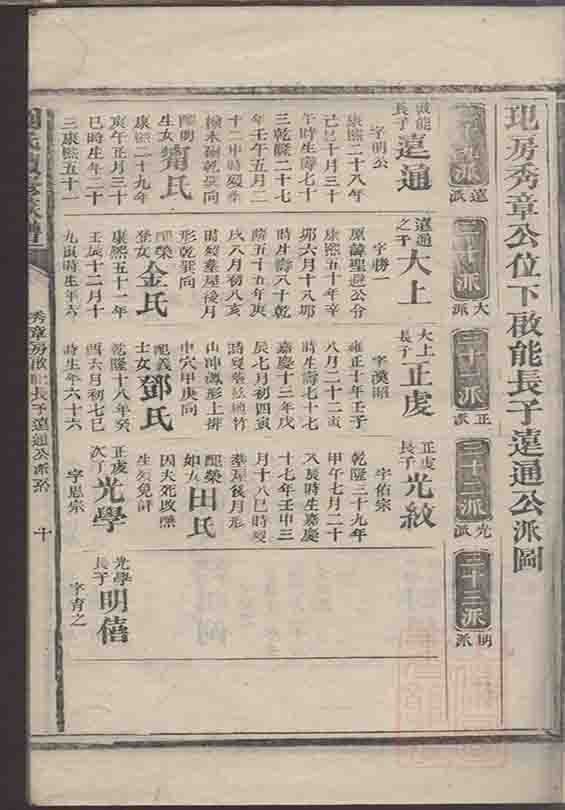 玘房秀章公位下啟能長子遠通公派圖
遠派
大派
三十一派 正派
三十二派 光派
三十三派 明派
啟能長子 遠通
字明公
康熙二十八年
己巳十月三十
午時生壽七十
三乾隆二十七
年壬午五月二
十二申時歿葬
配明 甯氏
生女
康熙二十九年
庚午正月三十
巳時生年二十
三康熙五十一
遠通之子 大上
字勝一
康熙五十年辛
卯六月十八卯
時生壽八十乾
隆五十五年庚
戌八月初八亥
時歿葬屋後月
形乾巽向
配榮 金氏
登女
康熙五十一年
壬辰十二月十
九寅時生年六
大上長子 正虔
字漢昭
雍正十年壬子
八月二十二寅
時生壽七十七
嘉慶十三年戊
辰七月初四寅
山冲鳳形上排
中穴甲庚向
配義 鄧氏
士女
乾隆十八年癸
酉六月初七巳
時生年六十六
正虔長子 光紋
字佑宗
乾隆三十九年
甲午七月二十
八辰時生嘉慶
十七年壬申三
月十八巳時歿
葬屋後月形
配榮 田氏
如女
因夫死改醮
生歿免詳
正虔次子 光學
字恩宗
光學長子 明僖
字育之
秀章房啟能長子遠通公派系 十